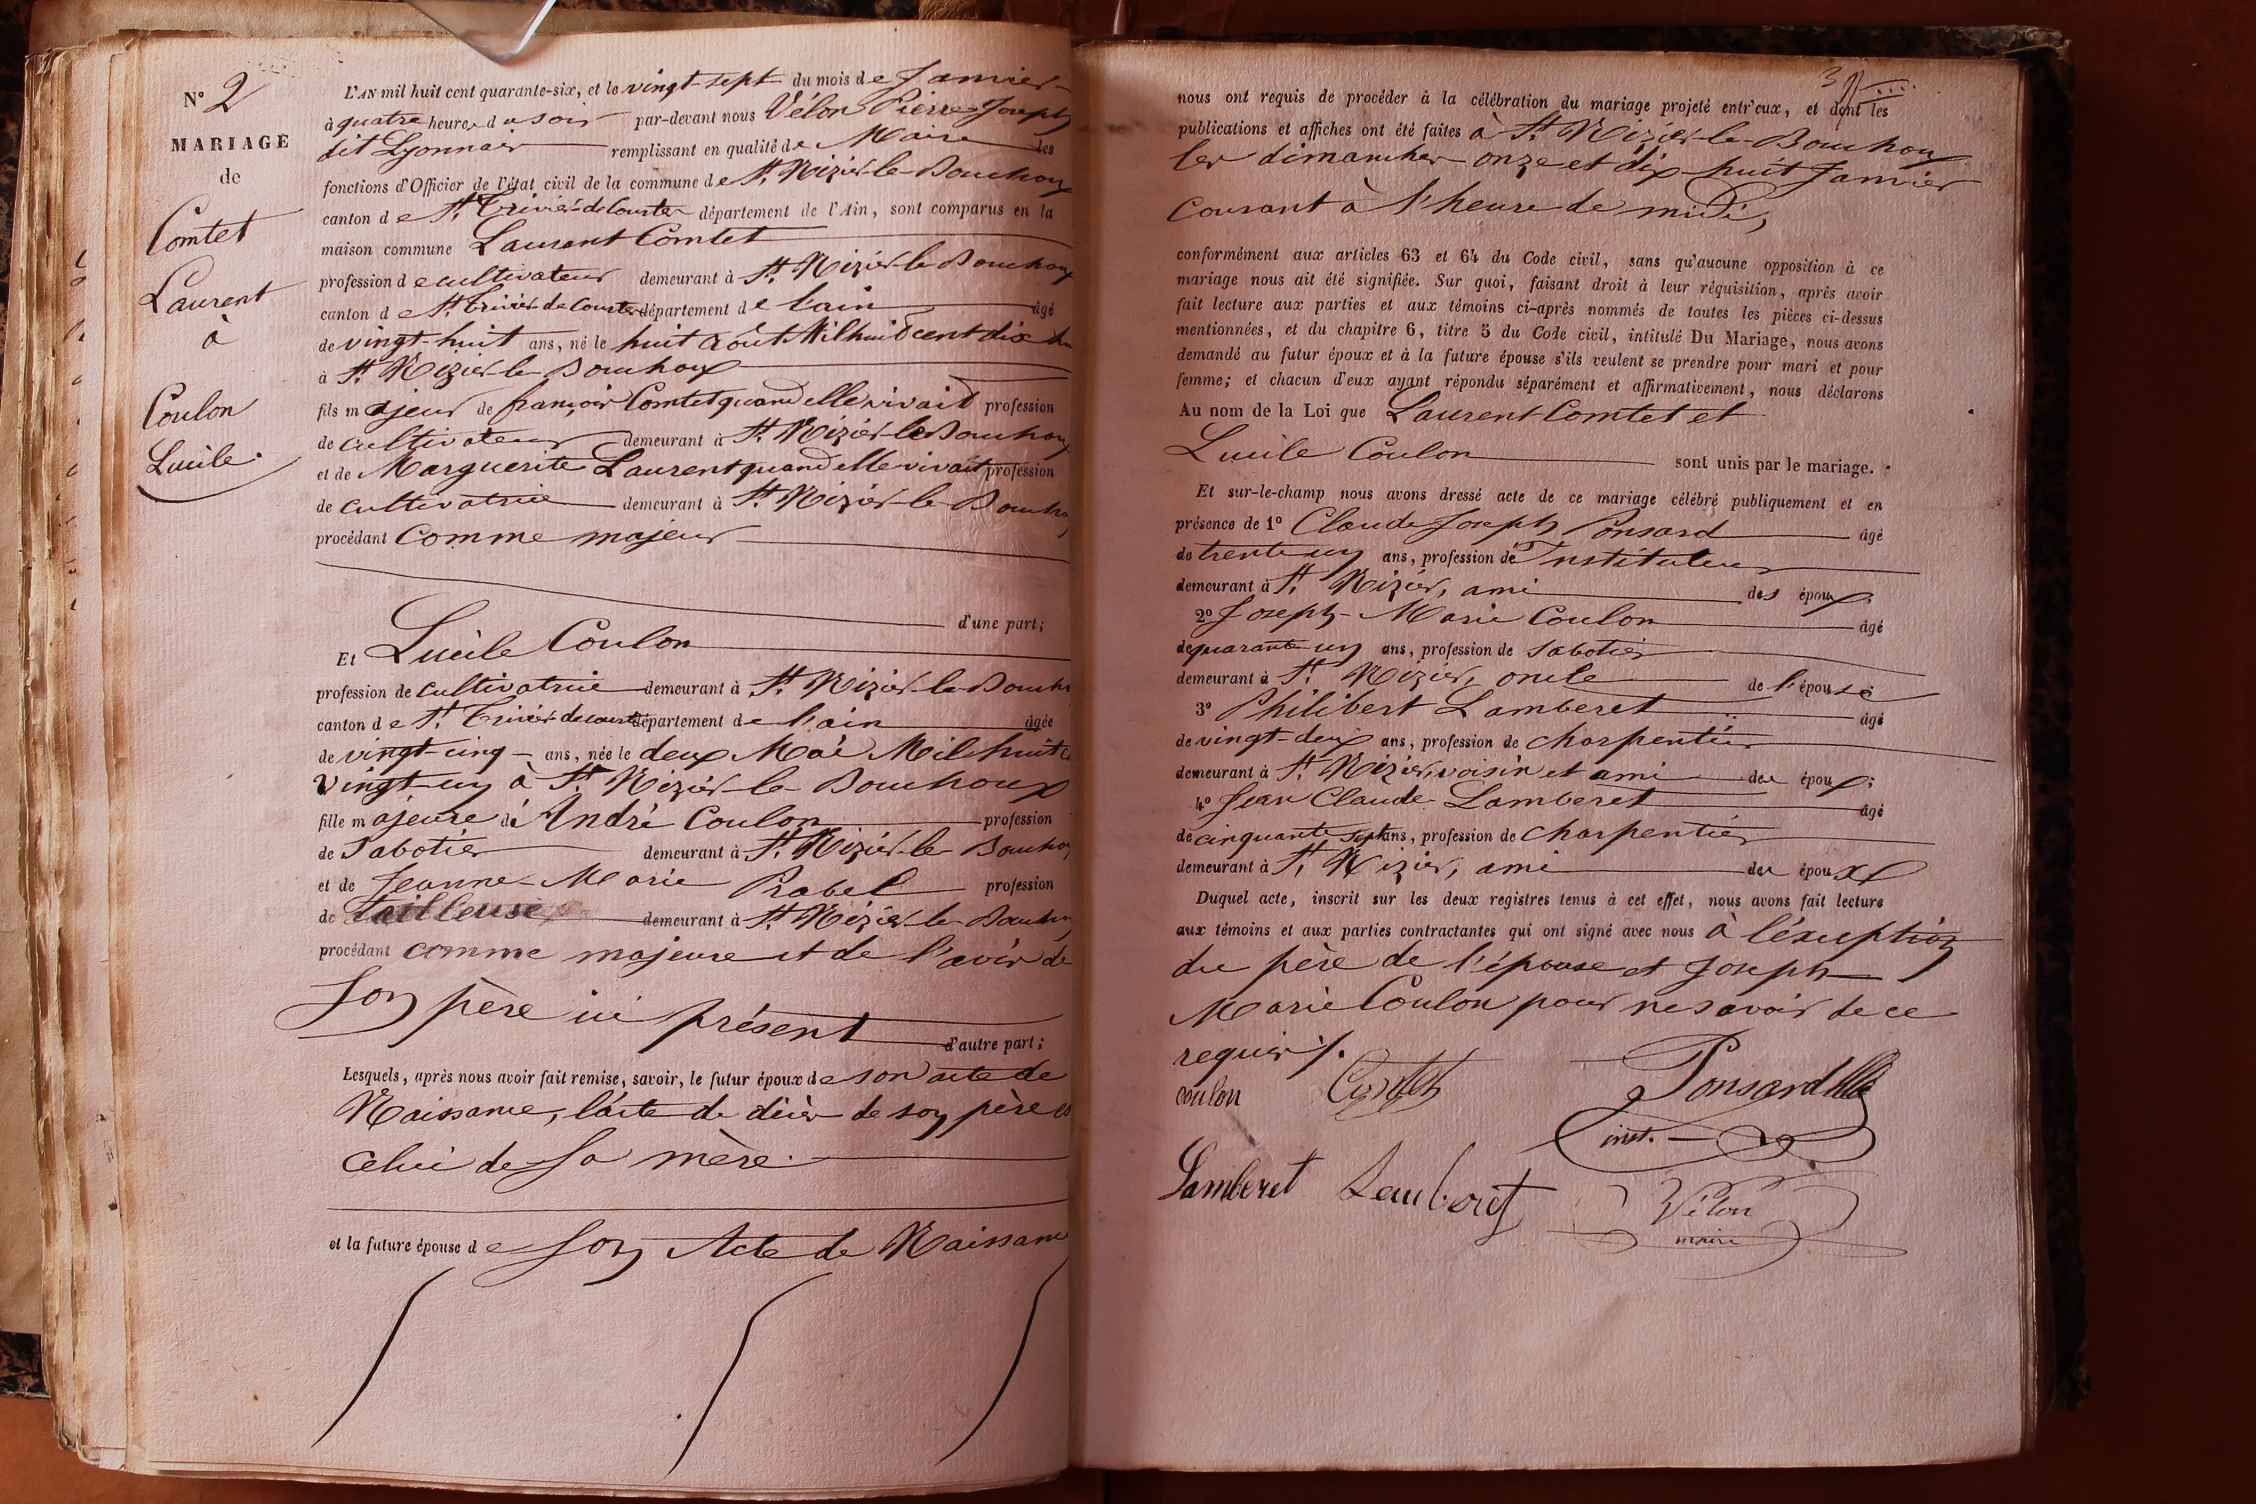 N° 2
MARIAGE
de
Comtet
Laurent
à
Coulon
Lucile.
L'AN mil huit cent quarante-six, et le vingt-sept du mois de Janvier
à quatre heures du soir par-devant nous Vélon Pierre Joseph
dit Lyonnais remplissant en qualité de Maire les
fonctions d'Officier de l'état civil de la commune de St. Nizier-le-Bouchoux
canton de St. Trivier-de-Courtes département de l'Ain, sont comparus en la
maison commune Laurent Comtet
profession de cultivateur demeurant à St. Nizier-le-Bouchoux
canton de St. Trivier de Courtes département de l'ain âgé
de vingt-huit ans, né le huit août Mil huit cent dix
à St. Nizier-le-Bouchoux
fils majeur de françois Comtet quand elle vivait profession
de cultivateur demeurant à St. Nizier-le-Bouchoux
et de Marguerite Laurent quand elle vivait profession
de cultivatrice demeurant à St. Nizier-le-Boucho
procédant comme majeur
d'une part;
Et Lucile Coulon
profession de cultivatrice demeurant à St. Nizier-le-Bouch
canton de St. Trivier de courtes département de l'ain âgée
de vingt-cinq ans, née le deux Mai Mil huit c
vingt-un à St. Nizier-le-Bouchoux
fille majeure de André Coulon profession
de Sabotier demeurant à St. Nizier-le-Boucho
et de Jeanne-Marie Rabel profession
de tailleuse demeurant à St. Nizier-le-Bouch
procédant comme majeure et de l'avis de
Son père ici présent
d'autre part;
Lesquels, après nous avoir fait remise, savoir, le futur époux de son acte de
Naissance, l'acte de décès de son père et
celui de Sa mère.
et la future épouse de Son Acte de Naissance
3
nous ont requis de procéder à la célébration du mariage projeté entr'eux, et dont les
publications et affiches ont été faites à St. Nizier-le-Bouchoux
les dimanches onze et dix-huit Janvier
Courant à l'heure de midi,
conformément aux articles 63 et 64 du Code civil, sans qu'aucune opposition à ce
mariage nous ait été signifiée. Sur quoi, faisant droit à leur réquisition, après avoir
fait lecture aux parties et aux témoins ci-après nommés de toutes les pièces ci-dessus
mentionnées, et du chapitre 6, titre 5 du Code civil, intitulé Du Mariage, nous avons
demandé au futur époux et à la future épouse s'ils veulent se prendre pour mari et pour
femme; et chacun d'eux ayant répondu séparément et affirmativement, nous déclarons
Au nom de la Loi que Laurent Comtet et
Lucile Coulon sont unis par le mariage.
Et sur-le-champ nous avons dressé acte de ce mariage célébré publiquement et en
présence de 1° Claude Joseph Ponsard âgé
de trente un ans, profession de Instituteur
demeurant à St. Nizier, ami des époux;
2° Joseph-Marie Coulon âgé
de quarante un ans, profession de Sabotier
demeurant à St. Nizier, oncle de l'épouse
3° Philibert Lamberet âgé
de vingt-deux ans, profession de charpentier
demeurant à St. Nizier, voisin et ami des époux;
4° Jean Claude Lamberet âgé
de cinquante sept ans, profession de charpentier
demeurant à St. Nizier, ami des époux
Duquel acte, inscrit sur les deux registres tenus à cet effet, nous avons fait lecture
aux témoins et aux parties contractantes qui ont signé avec nous à l'éxception
du père de l'épouse et Joseph
Marie Coulon pour ne savoir de ce
requis /.
Coulon Comtet Ponsard
inst.
Lamberet Lamberet Vélon
maire